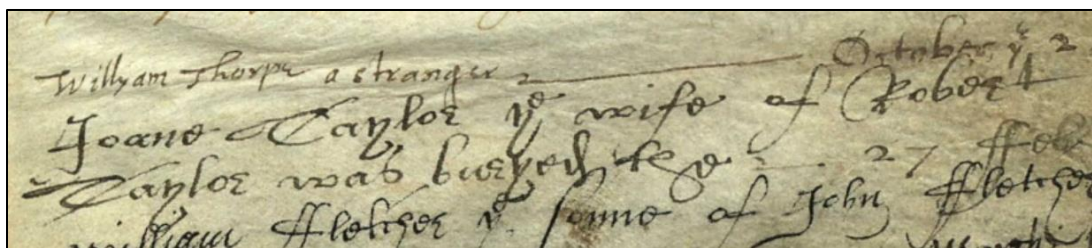 Willyam Thorpe a stranger October yͤ 2
Joane Taylor yͤ wife of Robert
Taylor was buryed the 27 ffeb
William ffletcher yͤ sonne of John ffletcher